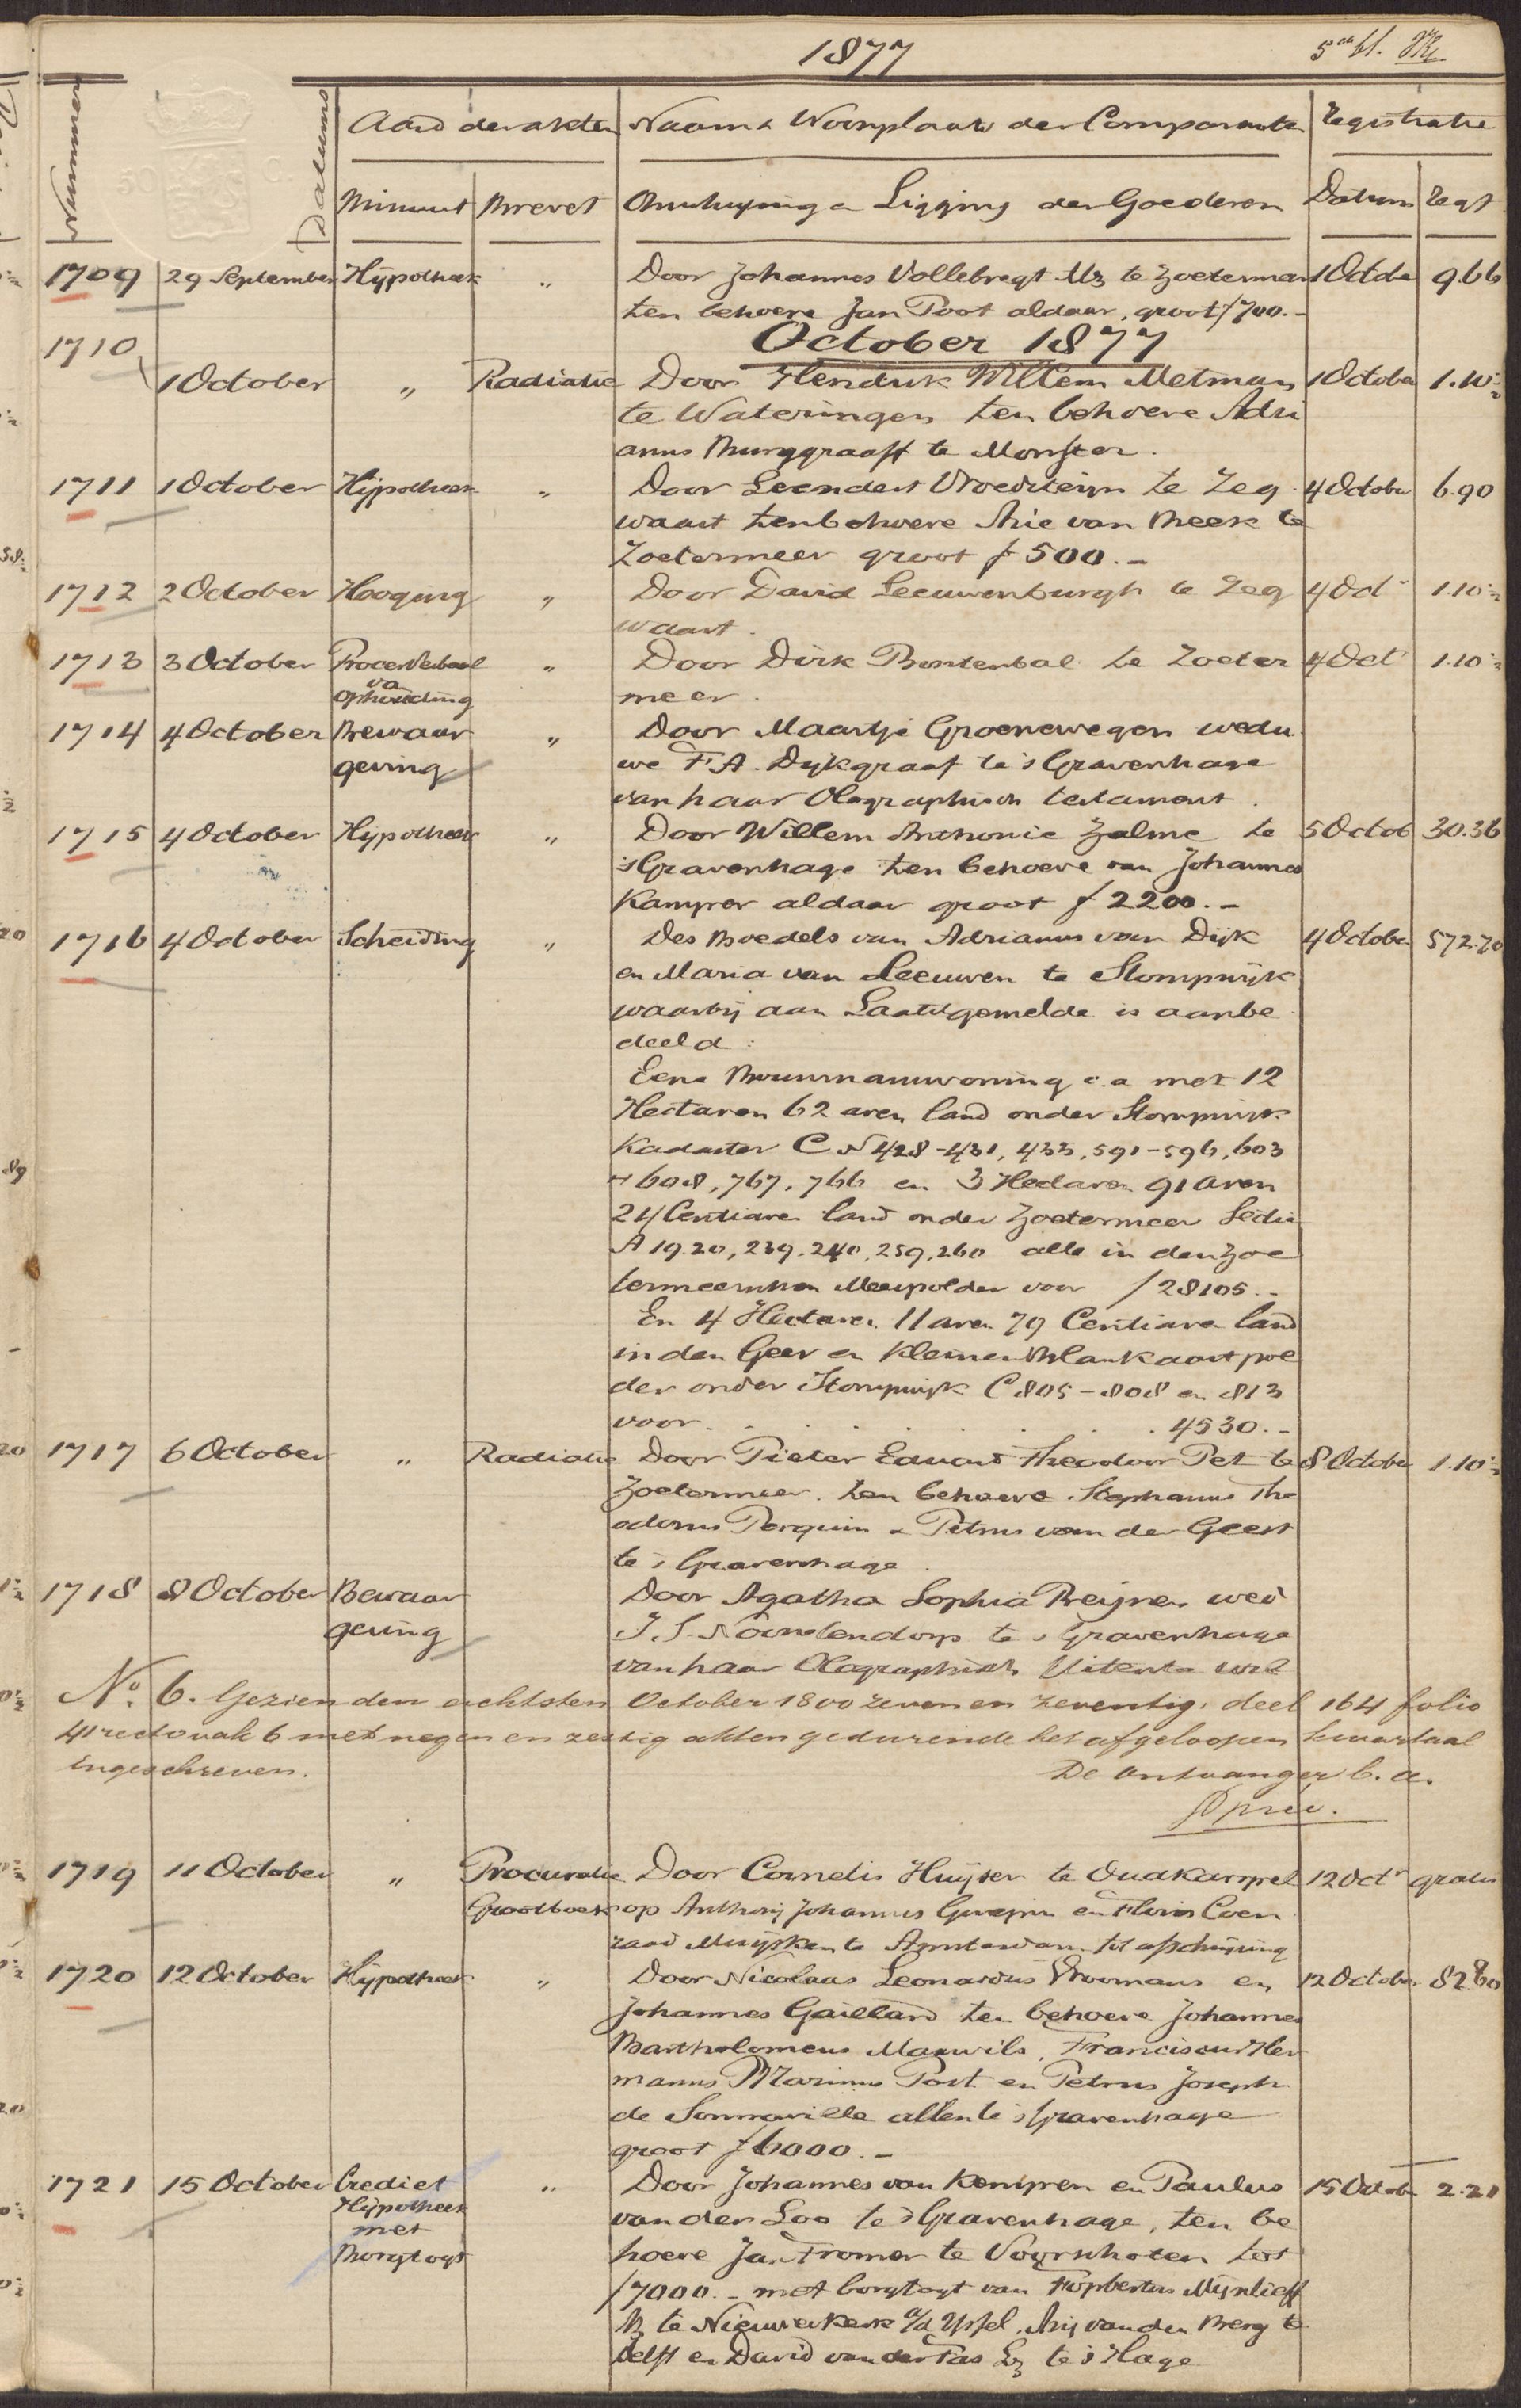 1877
5de bl.
Nummer Datums Aard der akten Naam & Woonplaats der Comparanten Registratie
Minuut Brevet Omschrijving & Ligging der Goederen Datum Regt
1709 29 September Hijpotheek " Door Johannes Vollebregt Mz te Zoetermeer 1 Octobe 9.66
ten behoeve Jan Poot aldaar, groot f 700.-
October 1877
1710
1 October " Radiatie Door Hendrik Willem Metman 1 October 1.10½
te Wateringen ten behoeve Adri
anus Burggraaff te Monster.
1711 1 October Hijpotheek " Door Leendert Vroedsteijn te Zeg 4 October 6.90
waart ten behoeve Arie van Beek te
Zoetermeer groot f 500.-
1712 2 October Hooging " Door David Leeuwenburgh te Zeg 4 Oct 1.10½
waart.
1713 3 October Procesverbaal " Door Dirk Bontenbal te Zoeter 4 Oct 1.10½
van
Ophouding meer.
1714 4 October Bewaar " Door Maartje Groenewegen wedu
geving we F.A. Dijkgraaf te 's Gravenhage
van haar Olographisch testament.
1715 4 October Hypotheek " Door Willem Anthonie Zalme te 5 Octob 30.36
's Gravenhage ten behoeve van Johannes
Kamper aldaar groot f 2200.-
1716 4 October Scheiding " Des Boedels van Adrianus van Dijk 4 October 572.70
en Maria van Leeuwen te Stompwijk
waarbij aan Laatstgemelde is aanbe
deeld:
Eene Bouwmanswoning c.a met 12
Hectaren 62 aren land onder Stompwijk
Kadaster C N 428-431, 433, 591-596, 603
608, 767, 766 en 3 Hectaren 91 aren
24 Centiaren land onder Zoetermeer Sectie
A 19.20, 239.240, 259,260 alle in den Zoe
termeerschen Meerpolder voor f 28105.-
En 4 Hectaren 11 aren 79 Centiaren land
in den Geer en Kleinen Blankaart pol
der onder Stompwijk C 805-808 en 813
voor . . . . . 4530.-
1717 6 October " Radiatie Door Pieter Eduard Theodoor Pet te 8 October 1.10½
Zoetermeer. ten behoeve Stephanus The
odorus Perquin & Petrus van der Geest
te 's Gravenhage.
1718 8 October Bewaar Door Agatha Sophia Breijnen wed
geving te 's Gravenhage
van haar Olographisch Uiterste wil
No. 6. Gezien den achtsten October 1800 zeven en zeventig, deel 164 folio
41 recto vak 6 met negen en zestig akten gedurende het afgeloopen kwartaal
ingeschreven. De Ontvanger b.a.
1719 11 October " Procuratie Door Cornelis Huijser te Oudkarspel 12 Oct gratis
Grootboek op Anthonij Johannes en Floris Coen
raad Muijsken te Amsterdam tot afschrijving
1720 12 October Hypotheek " Door Nicolaas Leonardus Vroomans en 12 October 82.80
Johannes Gaillard ten behoeve Johannes
Bartholomeus Manwils, Franciscus Her
manus Marinus Post en Petrus Joseph
de Sonnaville allen te 's Gravenhage
groot f 6000.-
1721 15 October Crediet " Door Johannes van Kempen en Paulus 15 October 2.21
Hijpotheek van der Loo te 's Gravenhage, ten be
met
Borgtogt hoeve Jan Fromer te Voorschoten tot
f 7000.- met borgtogt van Fopbertus Mijnlieff
Bz te Nieuwerkerk a/d Yssel, Arij van den Berg te
Delft en David van der Tas Lz te 's Hage